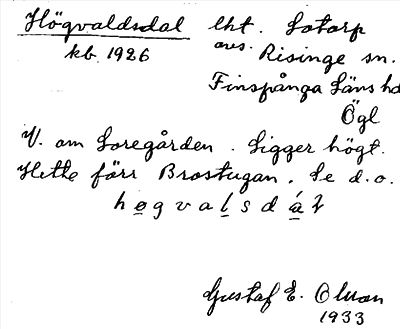 Högvaldsdal lht. Sotorp
kb. 1926 avs. Risinge sn.
Finspånga Läns hd
Ögl
V. om Soregården. Ligger högt.
Hette förr Brostugan. Se d.o.
høgvalsdál
Gustaf E. Olsson
1933